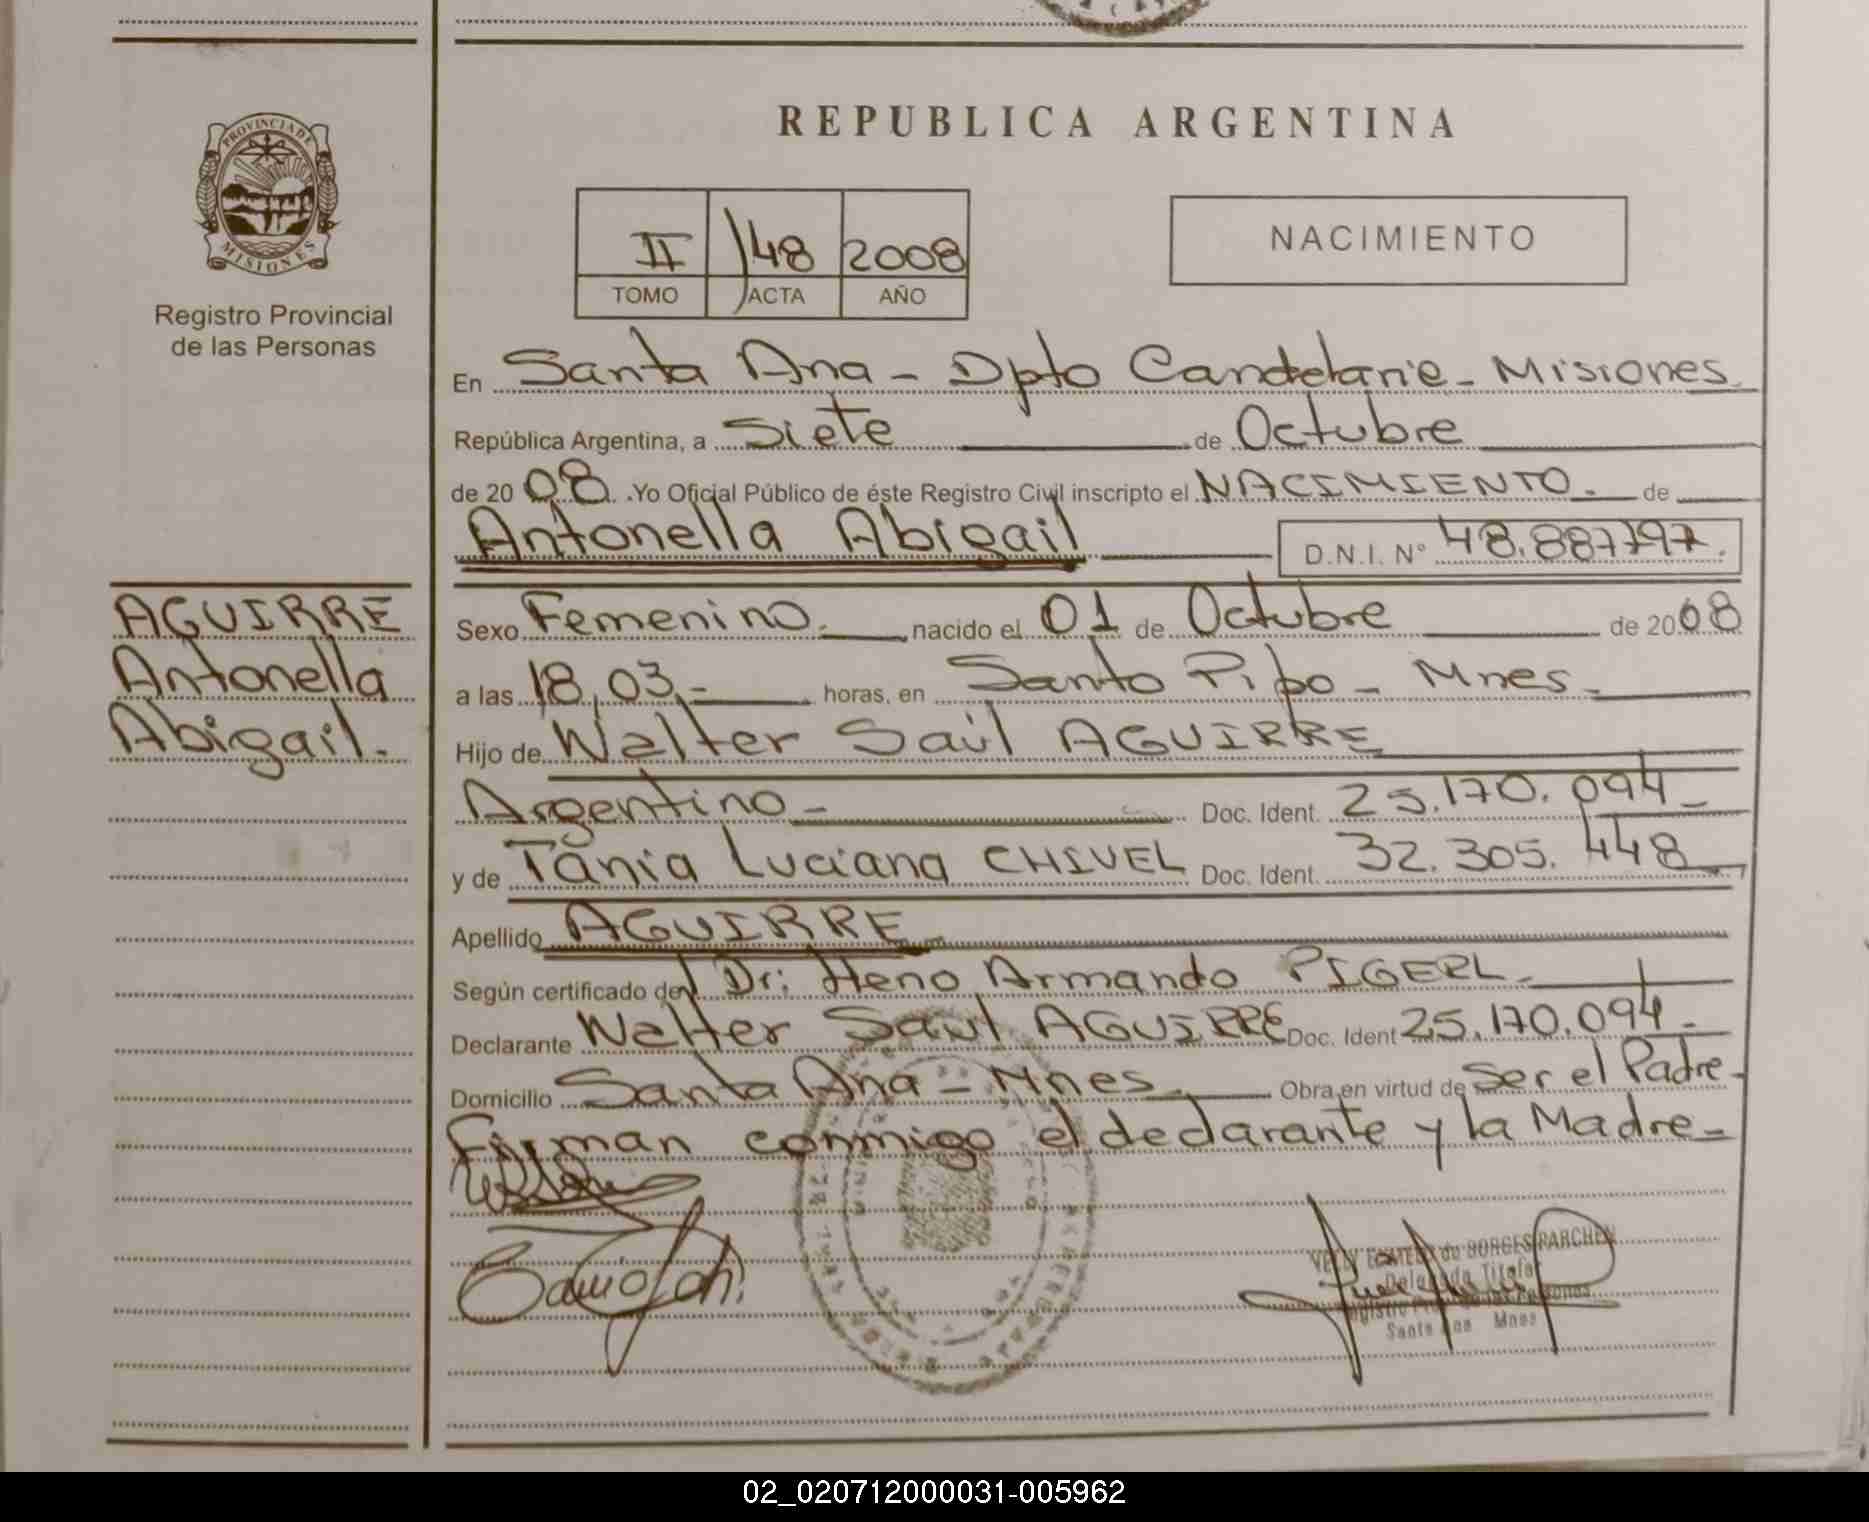 REPUBLICA ARGENTINA
PROVINCIA DE
MISIONES
Registro Provincial
de las Personas
II 148 2008
TOMO ACTA AÑO
NACIMIENTO
En Santa Ana - Dpto Candelaria - Misiones.
República Argentina, a Siete de Octubre
de 20 08. Yo Oficial Público de éste Registro Civil inscripto el NACIMIENTO. de
Antonella Abigail D.N.I. N° 48.887797.
AGUIRRE
Antonella
Abigail.-
Sexo Femenino. nacido el 01 de Octubre de 2008
a las 18,03.- horas, en Santo Pipo - Mnes.
Hijo de Walter Saúl AGUIRRE
Argentino - Doc. Ident. 25.170.094 -
y de Tania Luciana CHIVEL Doc. Ident. 32.305.448
Apellido AGUIRRE
Según certificado del Dr: Heno Armando PIGERL
Declarante Walter Saul AGUIRRE Doc. Ident 25.170.094 -
Domicilio Santa Ana - Mnes. Obra en virtud de Ser el Padre -
Firman conmigo el declarante y la Madre -
de BORGES PARCHEN
Delegada Titular
Santa Ana Mnes
02_020712000031-005962